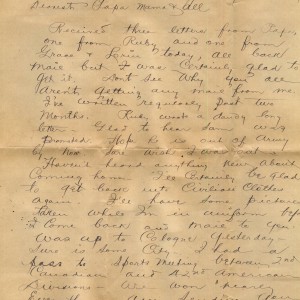 Dearest Papa Mama & All
Received three letters from Papa,
one from Ruby and one from
Grace & Louis today, all back
mail but I was Certainly glad to
get it. Dont See Why you all
Arent getting any mail from me.
I've written regularly past two
Months. Ruby wrote a dandy long
letter. Glad to hear Sam was
promoted Hope he is out of Army
by Now
Haven't heard anything New about
Coming home. I'll Certainly be glad
to get back into Civilian Clothes
again. I'll have some pictures
taken while I'm in uniform before
I Come back and mail to you.
Was up to Cologne Yesterday -
is Some City. I had a
pass to Sports Meeting between 2nd
Canadian and 42nd American
Divisions - We won nearly